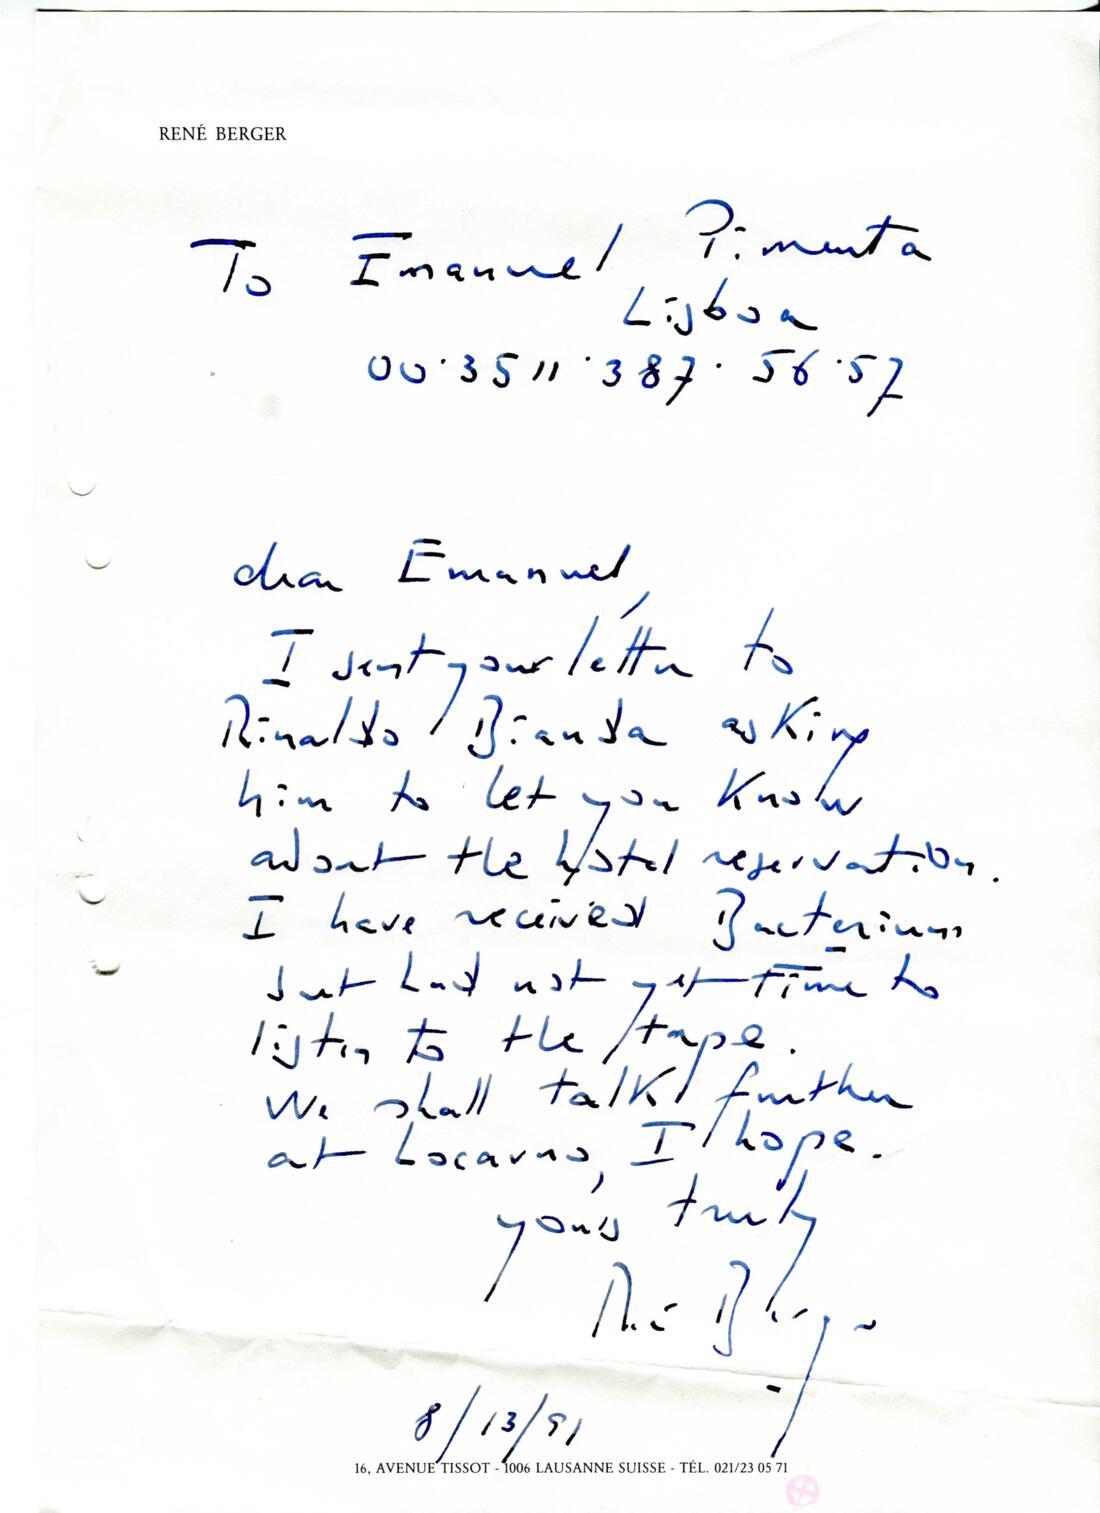 RENÉ BERGER
To Emanuel Pimenta
Lisboa
00·3511·387·56·57
dear Emanuel,
I sent your letter to
Rinaldo Bianda asking
him to let you know
about the hotel reservation.
I have received Bacterium
but had not yet time to
listen to the tape.
We shall talk further
at Locarno, I hope.
yours truly
René Berger
8/13/91
16, AVENUE TISSOT - 1006 LAUSANNE SUISSE - TÉL. 021/23 05 71